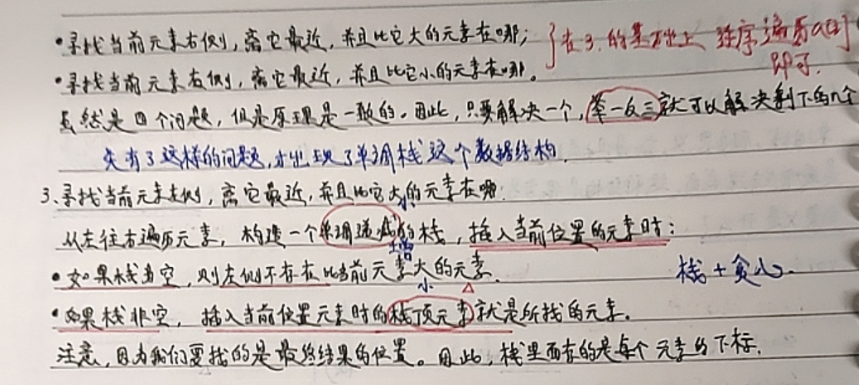 ·寻找当前元素右侧,离它最近,并且比它大的元素在哪; }在3.的基础上 逆序遍历a[i]
·寻找当前元素右侧,离它最近,并且比它小的元素在哪。 即可.
虽然是四个问题,但是原理是一致的。因此,只要解决一个,举一反三就可以解决剩下的几个
先有了这样的问题,才出现了单调栈这个数据结构.
3.寻找当前元素左侧,离它最近,并且比它大的元素在哪 小
从左往右遍历元素,构造一个单调递减的栈,插入当前位置的元素时: 增
·如果栈为空,则左侧不存在比当前元素大的元素. 小 栈+贪心.
·如果栈非空,插入当前位置元素时的栈顶元素就是所找的元素.
注意,因为我们要找的是最终结果的位置。因此,栈里面存的是每个元素的下标.